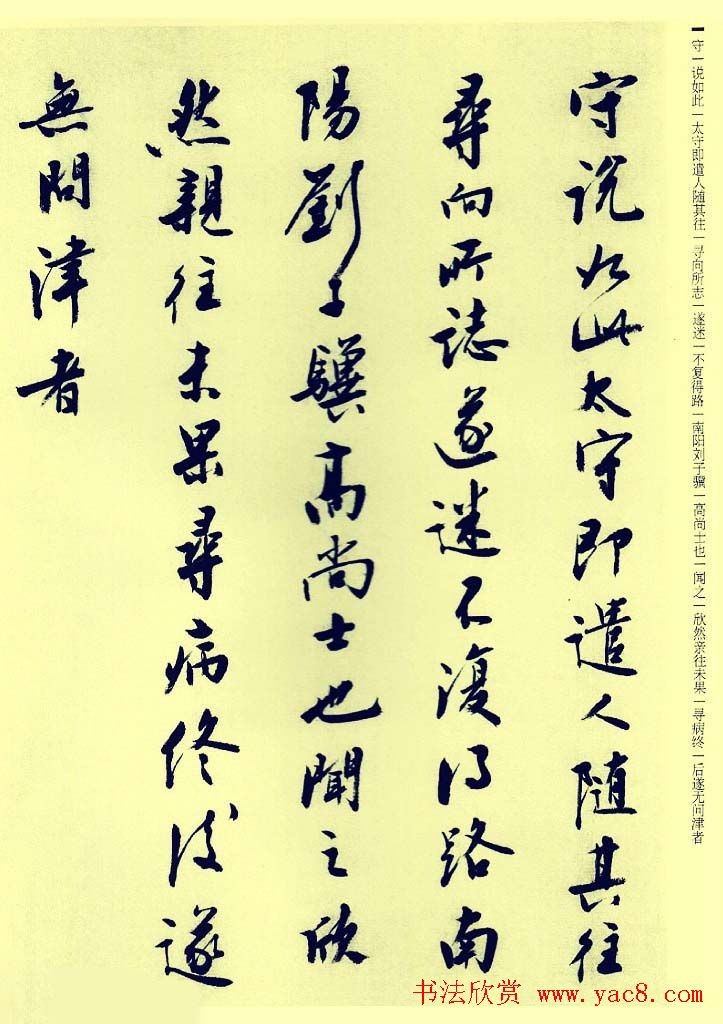 守一说如此一太守即遣人随其往一寻向所志一遂迷一不复得路一南阳刘子骥一高尚士也一闻之一欣然亲往未果一寻病终一后遂无问津者
守说如此太守即遣人随其往
尋向所誌遂迷不復得路南
陽劉子驥高尚士也聞之欣
然親往未果尋病終後遂
無問津者
书法欣赏 www.yac8.com